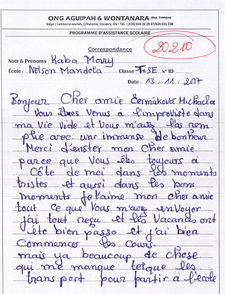 ONG AGUIPAH & WONTANARA
PROGRAMME D'ASSISTANCE SCOLAIRE
Correspondance
20210
Nom & Prénoms Kaba Mory
École: Nelson Mandela Classe TSE N° 89
DATE 13.11.2017
Bonjour Cher amie Bernikova Michaela
Vous êtes venus à l'improviste dans
ma vie vide et vous m'avez la rem
plie avec une immense de bonheur
Merci d'ester mon Cher amie
parce que Vous êtes toujours à
Côte de moi dans les moments
tristes et aussi dans les bons
moments je t'aime mon Cher amie
tout ce que Vous m'avez envoyer
j'ai tout reçu et les Vacances ont
été bien passe et j'ai bien
Commencer les Cours.
mais ya beaucoup de chose
qui me manque telque les
transport pour partir a l'école